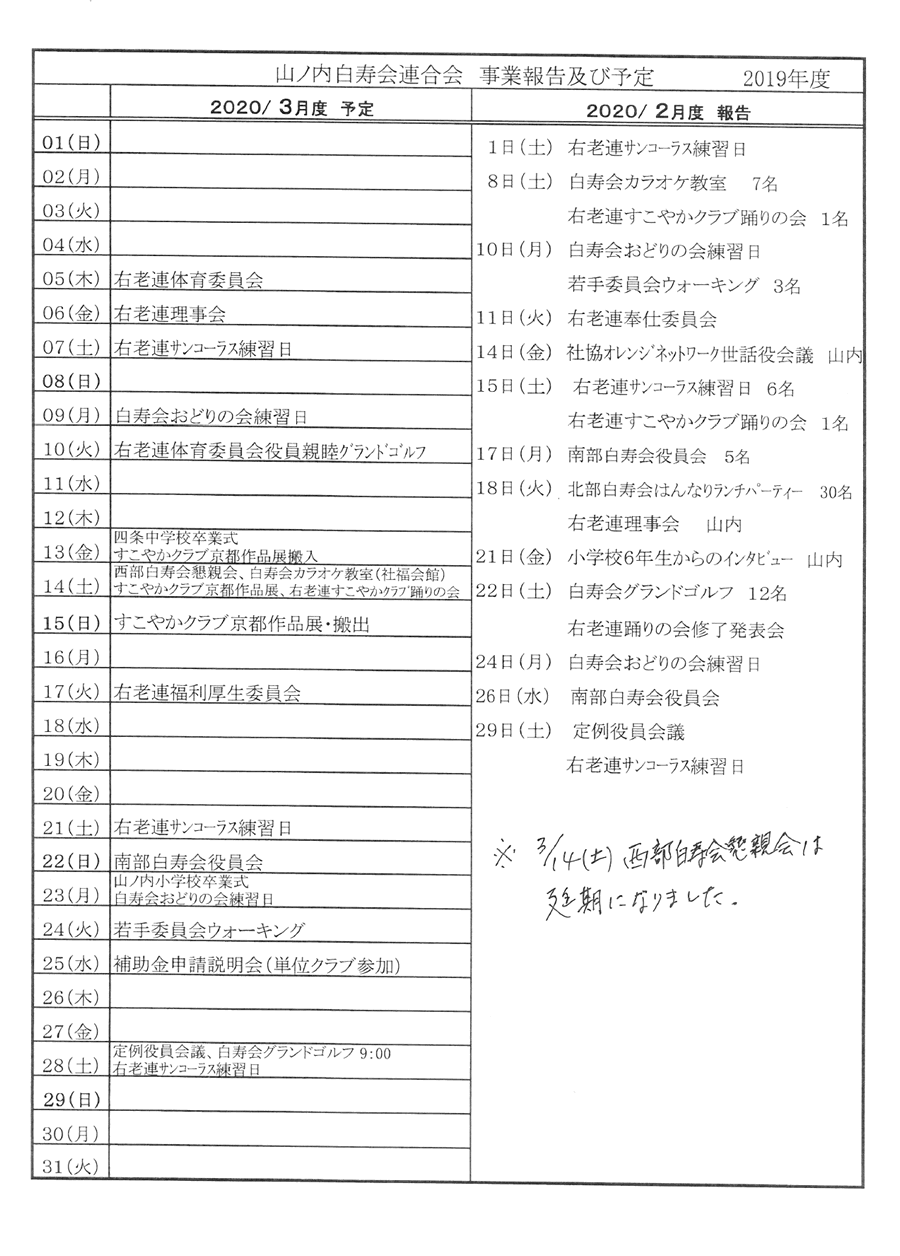 山ノ内白寿会連合会 事業報告及び予定 2019年度
2020/ 3月度 予定
01(日)
02(月)
03(火)
04(水)
05(木) 右老連体育委員会
06(金) 右老連理事会
07(土) 右老連ｻﾝｺｰﾗｽ練習日
08(日)
09(月) 白寿会おどりの会練習日
10(火) 右老連体育委員会役員親睦ｸﾞﾗﾝﾄﾞｺﾞﾙﾌ
11(水)
12(木)
13(金) 四条中学校卒業式
すこやかクラブ京都作品展搬入
14(土) 西部白寿会懇親会、白寿会カラオケ教室(社福会館)
すこやかクラブ京都作品展、右老連すこやかｸﾗﾌﾞ踊りの会
15(日) すこやかクラブ京都作品展・搬出
16(月)
17(火) 右老連福利厚生委員会
18(水)
19(木)
20(金)
21(土) 右老連ｻﾝｺｰﾗｽ練習日
22(日) 南部白寿会役員会
23(月) 山ノ内小学校卒業式
白寿会おどりの会練習日
24(火) 若手委員会ウォーキング
25(水) 補助金申請説明会(単位クラブ参加)
26(木)
27(金)
28(土) 定例役員会議、白寿会グランドゴルフ 9:00
右老連ｻﾝｺｰﾗｽ練習日
29(日)
30(月)
31(火)
2020/ 2月度 報告
1日(土) 右老連ｻﾝｺｰﾗｽ練習日
8日(土) 白寿会カラオケ教室 7名
右老連すこやかクラブ踊りの会 1名
10日(月) 白寿会おどりの会練習日
若手委員会ウォーキング 3名
11日(火) 右老連奉仕委員会
14日(金) 社協ｵﾚﾝｼﾞﾈｯﾄﾜｰｸ世話役会議 山内
15日(土) 右老連ｻﾝｺｰﾗｽ練習日 6名
右老連すこやかクラブ踊りの会 1名
17日(月) 南部白寿会役員会 5名
18日(火) 北部白寿会はんなりﾗﾝﾁﾊﾟｰﾃｨｰ 30名
右老連理事会 山内
21日(金) 小学校6年生からのｲﾝﾀﾋﾞｭｰ 山内
22日(土) 白寿会グランドゴルフ 12名
右老連踊りの会修了発表会
24日(月) 白寿会おどりの会練習日
26日(水) 南部白寿会役員会
29日(土) 定例役員会議
右老連ｻﾝｺｰﾗｽ練習日
※ 3/14(土) 西部白寿会懇親会は
延期になりました。